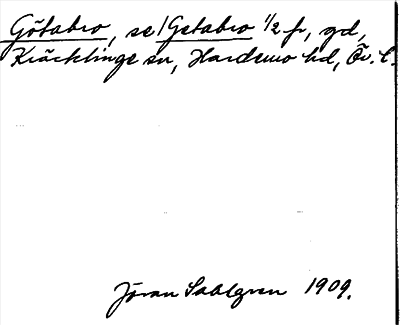 Götabro, se/Getabro 1/2 fr, gd,
Kräcklinge sn, Hardemo hd, Ör. l.
Jöran Sahlgren 1909.